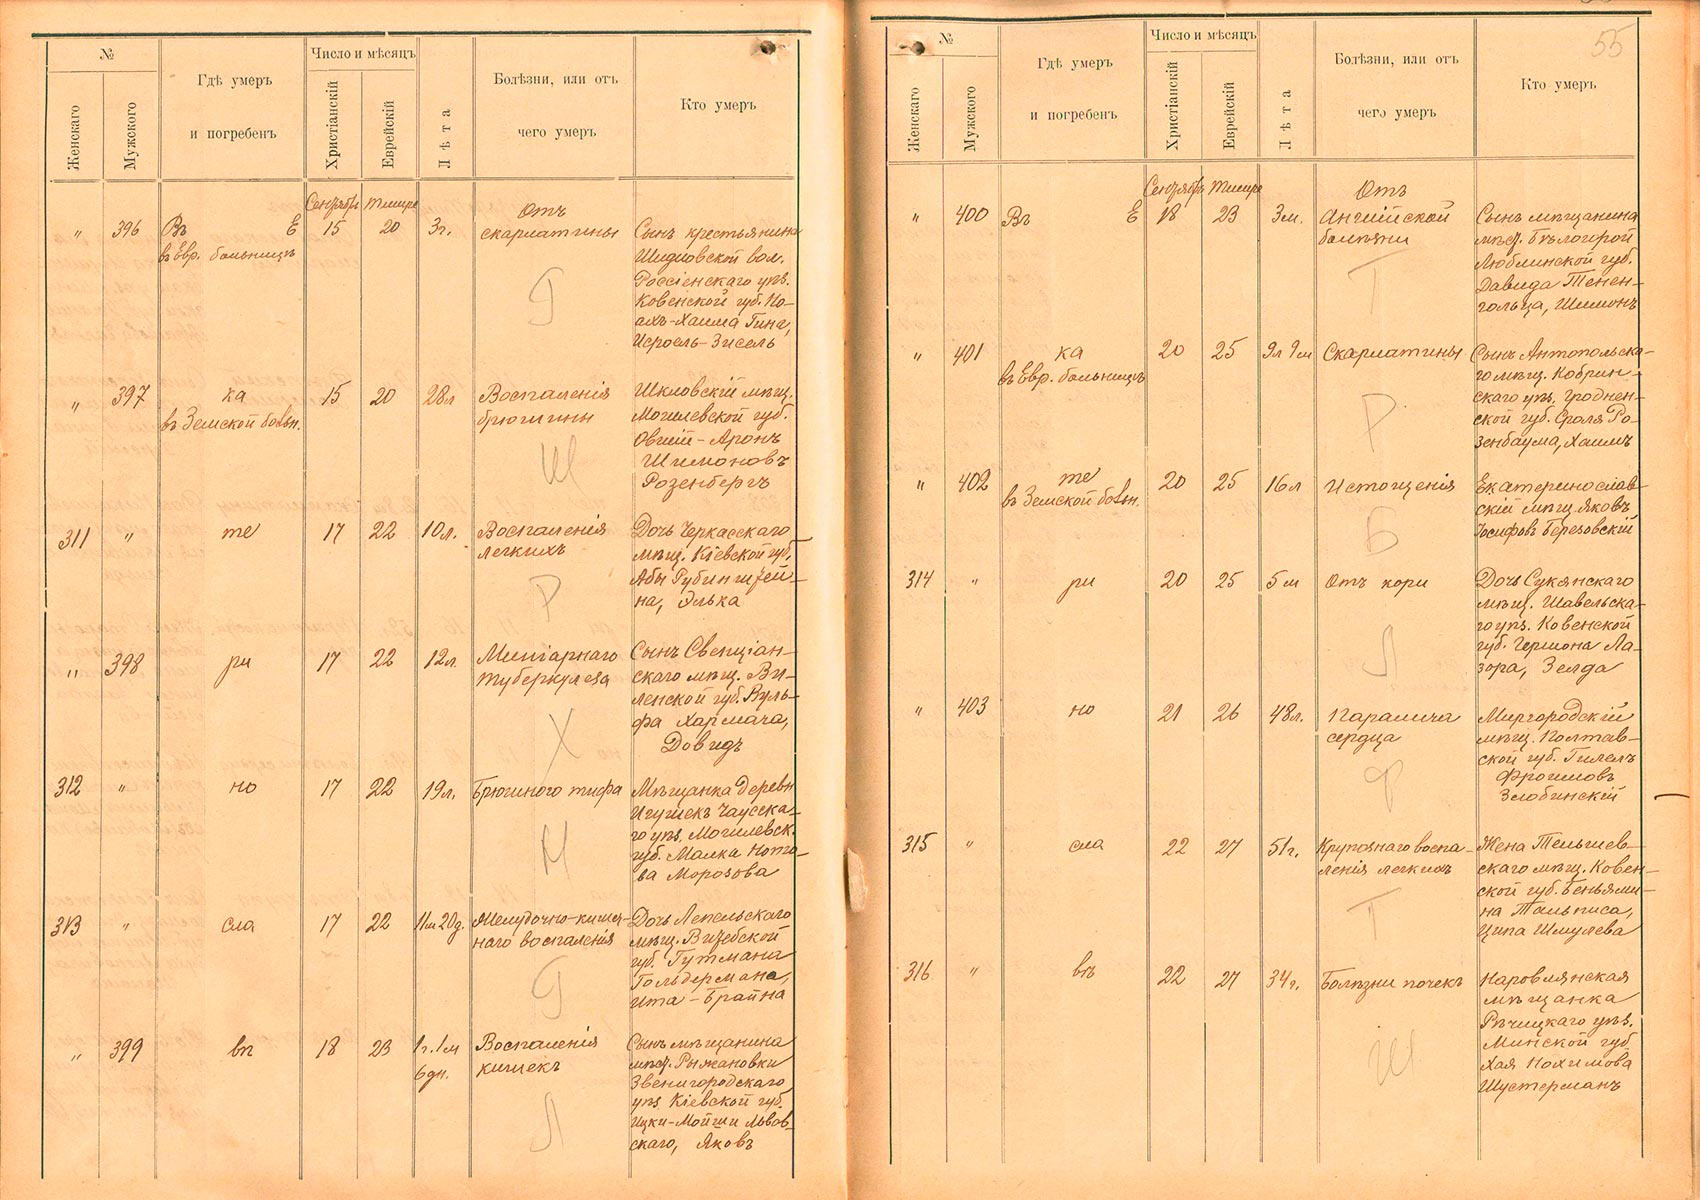 №
Женскаго
Мужскаго
Гдѣ умеръ
и погребенъ
Число и мѣсяцъ
Христіанскій
Еврейскій
Лѣта
Болѣзни, или отъ
чего умеръ
Кто умеръ
Сентябрь Тишре
" 396 Въ Е 15 20 3г.
въ Евр. больницѣ
Отъ
скарлатины
Г
Сынъ крестьянина
Шидловской вол.
Россіенскаго уѣз.
Ковенской губ. Но-
ахъ-Хаима Гинг,
Исроэль-Зисель
" 397 ка 15 20 28л
въ Земской больн.
Воспаленія
брюшины
Ш
Шкловскій мѣщ.
Могилевской губ.
Овший-Аронъ
Шимоновъ
Розенбергъ
311 " те 17 22 10л.
Воспаленія
легкихъ
Р
Дочь Черкасскаго
мѣщ. Кіевской губ.
Абы Рубинштей-
на, Элька
" 398 ри 17 22 12л.
Миліарнаго
туберкулеза
Х
Сынъ Свенціан-
скаго мѣщ. Ви-
ленской губ. Вуль-
фа Хармача,
Довидъ
312 " но 17 22 19л.
Брюшного тифа
М
Мѣщанка деревн
Чаусска-
го уѣз. Могилевск.
губ. Малка Ното-
ва Морозова
313 " сла 17 22 11м 20д.
Желудочно-кишеч-
наго воспаленія
Г
Дочь Лепельскаго
мѣщ. Витебской
губ. Гутмана
Гольдермана,
Ита-Брайна
" 399 вѣ 18 23 1г. 1м
6дн.
Воспаленія
кишекъ
Л
Сынъ мѣщанина
мѣст. Рыжановки
Звенигородскаго
уѣз Кіевской губ.
Ицки-Мойши Львов-
скаго, Яковъ
55
№
Женскаго
Мужскаго
Гдѣ умеръ
и погребенъ
Число и мѣсяцъ
Христіанскій
Еврейскій
Лѣта
Болѣзни, или отъ
чего умеръ
Кто умеръ
Сентябрь Тишре
" 400 Въ Е 18 23 3м.
Отъ
Англійской
болѣзни
Т
Сынъ мѣщанина
мѣст. Бѣлогорой
Люблинской губ.
Давида Тенен-
гольца, Шимонъ
" 401 ка 20 25 9л 9м
въ Евр. больницѣ
Скарлатины
Р
Сынъ Антопольска-
го мѣщ. Кобрин-
скаго уѣз. Гроднен-
ской губ. Сроля Ро-
зенбаума, Хаимъ
" 402 те 20 25 16л
въ Земской больн.
Истощенія
Б
Екатеринослав-
скій мѣщ. Яковъ
Іосифовъ Березовскій
314 " ри 20 25 5м
Отъ кори
Л
Дочь Сукянскаго
мѣщ. Шавельска-
го уѣз. Ковенской
губ. Гершона Ла-
зора, Зелда
" 403 но 21 26 48л.
Паралича
сердца
Ф
Миргородскій
мѣщ. Полтав-
ской губ. Гилелъ
Фроимовъ
Злобинскій
315 " сла 22 27 51г.
Крупознаго воспа-
ленія легкихъ
Т
Жена Тельшев-
скаго мѣщ. Ковен-
ской губ. Беньями-
на Тальписа,
Ципа Шмулева
316 " вѣ 22 27 34г.
Болѣзни почекъ
Ш
Наровлянская
мѣщанка
Рѣчицкаго уѣз.
Минской губ
Хая Нохимова
Шустерманъ